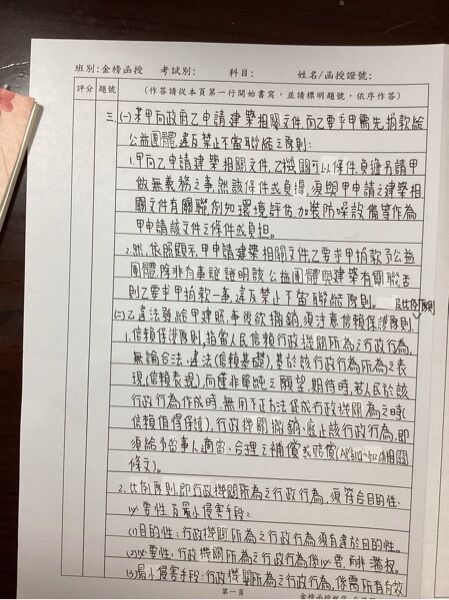 班別:金榜函授 考試別: 科目: 姓名/函授證號:
評分 題號 (作答請從本頁第一行開始書寫,並請標明題號,依序作答)
三、(一)某甲向政府乙申請建築相關文件,而乙要求甲需先捐款給
公益團體,違反禁止不當聯結之原則:
1.甲向乙申請建築相關文件,乙機關可以條件、負擔另請甲
做無義務之事,然該條件或負擔,須與甲申請之建築相
關文件有關聯,例如環境評估、加裝防噪設備等作為
甲申請該文件之條件或負担。
2.然,依題顯示,甲申請建築相關文件,乙要求甲捐款予公益
團體,除非有事證證明該公益團體與建築有關聯,否
則乙要求甲捐款一事,違反禁止不當聯結原則。 及比例原則
(二)乙違法發給甲建照,事後欲撤銷,須注意信賴保護原則
1.信賴保護原則,指當人民信賴行政機關所為之行政行為,
無論合法、違法(信賴基礎),基於該行政行為所為之表
現(信賴表現),而僅非單純之願望、期待時,若人民於該
行政行為作成時,無用不正方法促成行政機關為之時(
信賴值得保護),行政機關撤銷、廢止該行政行為,即
須給予當事人適當、合理之補償或賠償(相關
條文)。
2.比例原則,即行政機關所為之行政行為,須符合目的性、
必要性及最小侵害手段:
(1)目的性:行政機關所為之行政行為須有達於目的性。
(2)必要性:行政機關所為之行政行為係必要,而非濫權。
(3)最小侵害手段:行政機關所為之行政行為,係需所有有效
第一頁